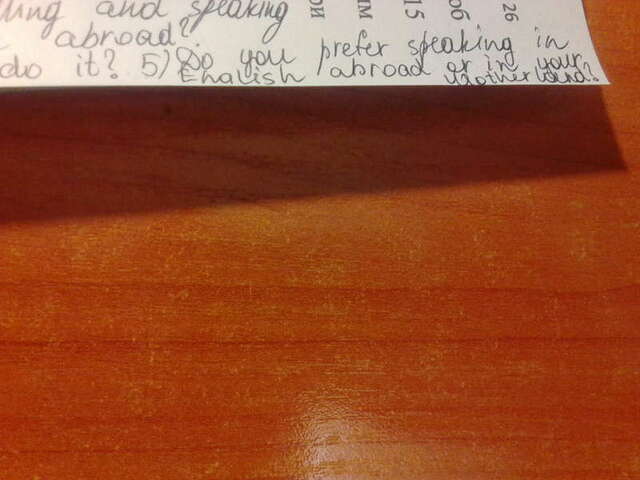 and speaking
abroad?
do it? 5) Do you prefer speaking in
English abroad or in your
motherland?
ИИ
ИМ
15
06
26